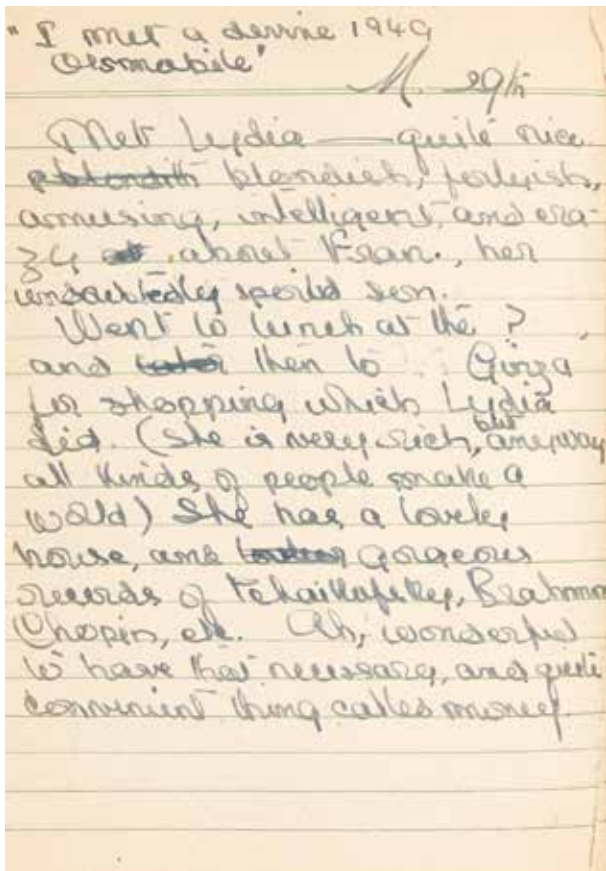 "I met a devine 1949
Olsmobile"
M. 29/12
Mett Lydia — quite nice
blondish, fortyish,
amusing, intelligent, and cra-
zy about Fran., her
undoubtedly spoiled son.
Went to lunch at the ?
and then to Ginza
for shopping which Lydia
did. (She is very rich, but anyway
all kinds of people make a
world) She has a lovely
house, and gorgeous
records of Tchaikofsky, Brahms
Chopin, etc. Ah, wonderful
to have that necessary, and quite
convenient thing called money.